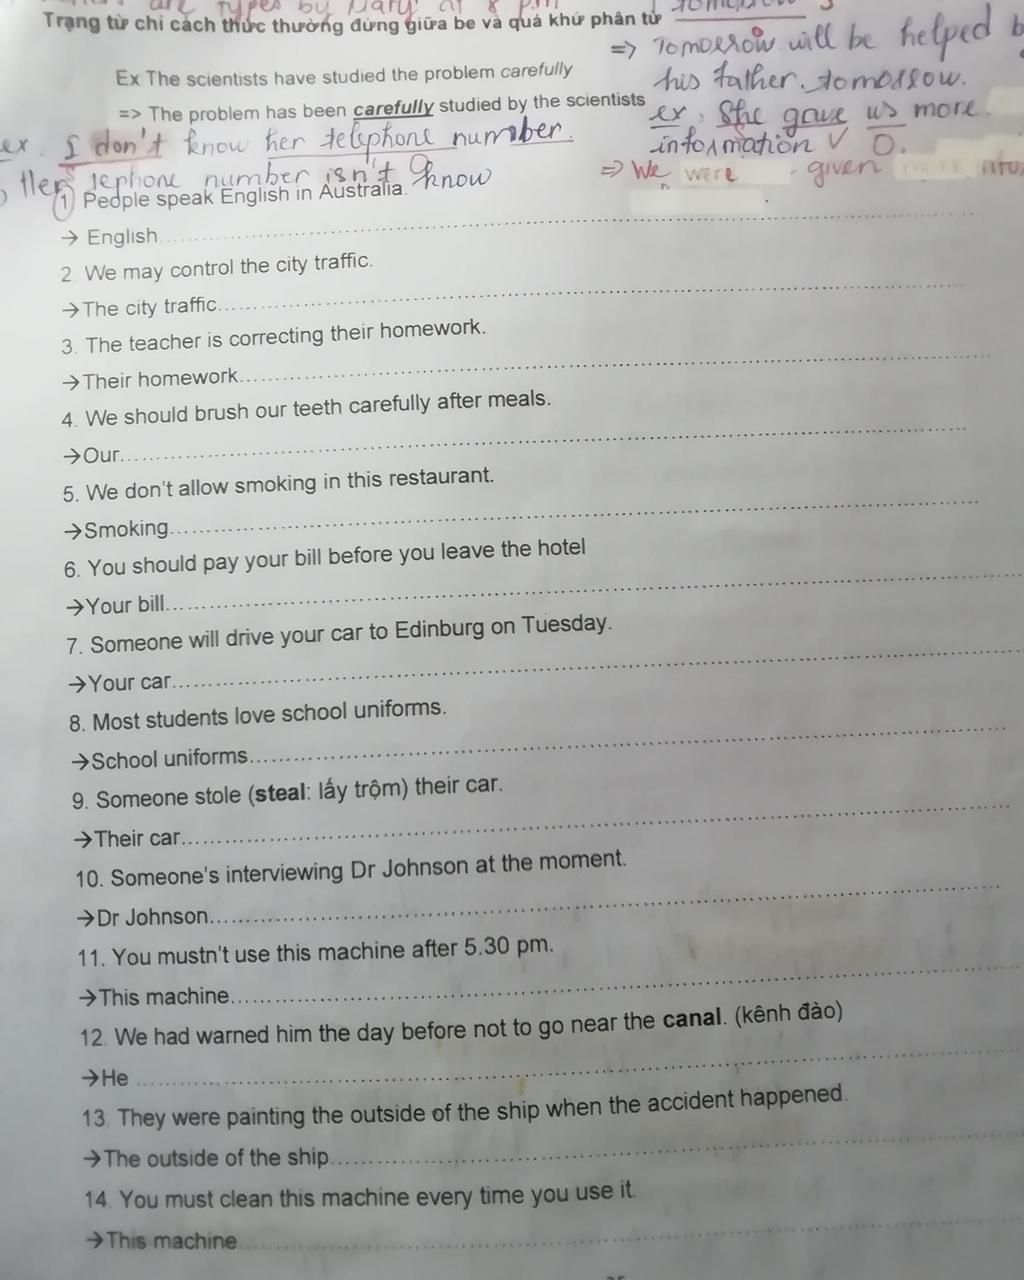 are types by Mary at 8 p.m
Trạng từ chỉ cách thức thường đứng giữa be và quá khứ phân từ
=> Tomorrow will be helped b
his father. tomorrow.
Ex The scientists have studied the problem carefully
=> The problem has been carefully studied by the scientists
ex, She gave us more
information V O.
=> We were given
ex. I don't know her telephone number.
Her lephone number isn't know
1 People speak English in Australia.
→ English
2. We may control the city traffic.
→The city traffic
3. The teacher is correcting their homework.
→Their homework
4. We should brush our teeth carefully after meals.
→Our
5. We don't allow smoking in this restaurant.
→Smoking
6. You should pay your bill before you leave the hotel
→Your bill
7. Someone will drive your car to Edinburg on Tuesday.
→Your car
8. Most students love school uniforms.
→School uniforms
9. Someone stole (steal: lấy trộm) their car.
→Their car
10. Someone's interviewing Dr Johnson at the moment.
→Dr Johnson
11. You mustn't use this machine after 5.30 pm.
→This machine
12. We had warned him the day before not to go near the canal. (kênh đào)
→He
13. They were painting the outside of the ship when the accident happened.
→The outside of the ship
14. You must clean this machine every time you use it.
→This machine